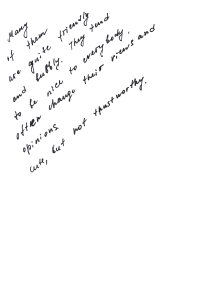 Many
of them
are quite friendly
and bubbly. They tend
to be nice to everybody.
often change their views and
opinions
cute, but not trustworthy.